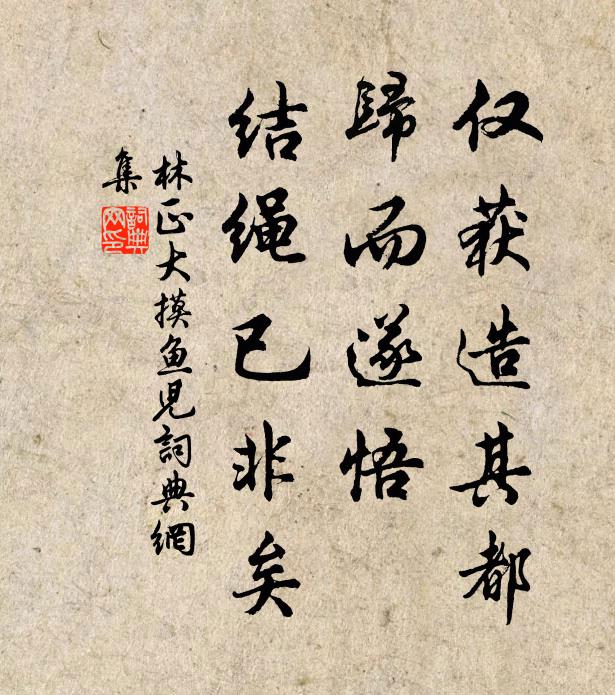 仅获造其都
歸而遂悟
结绳已非矣
林正大摸鱼儿詞典網
集
詞典网印